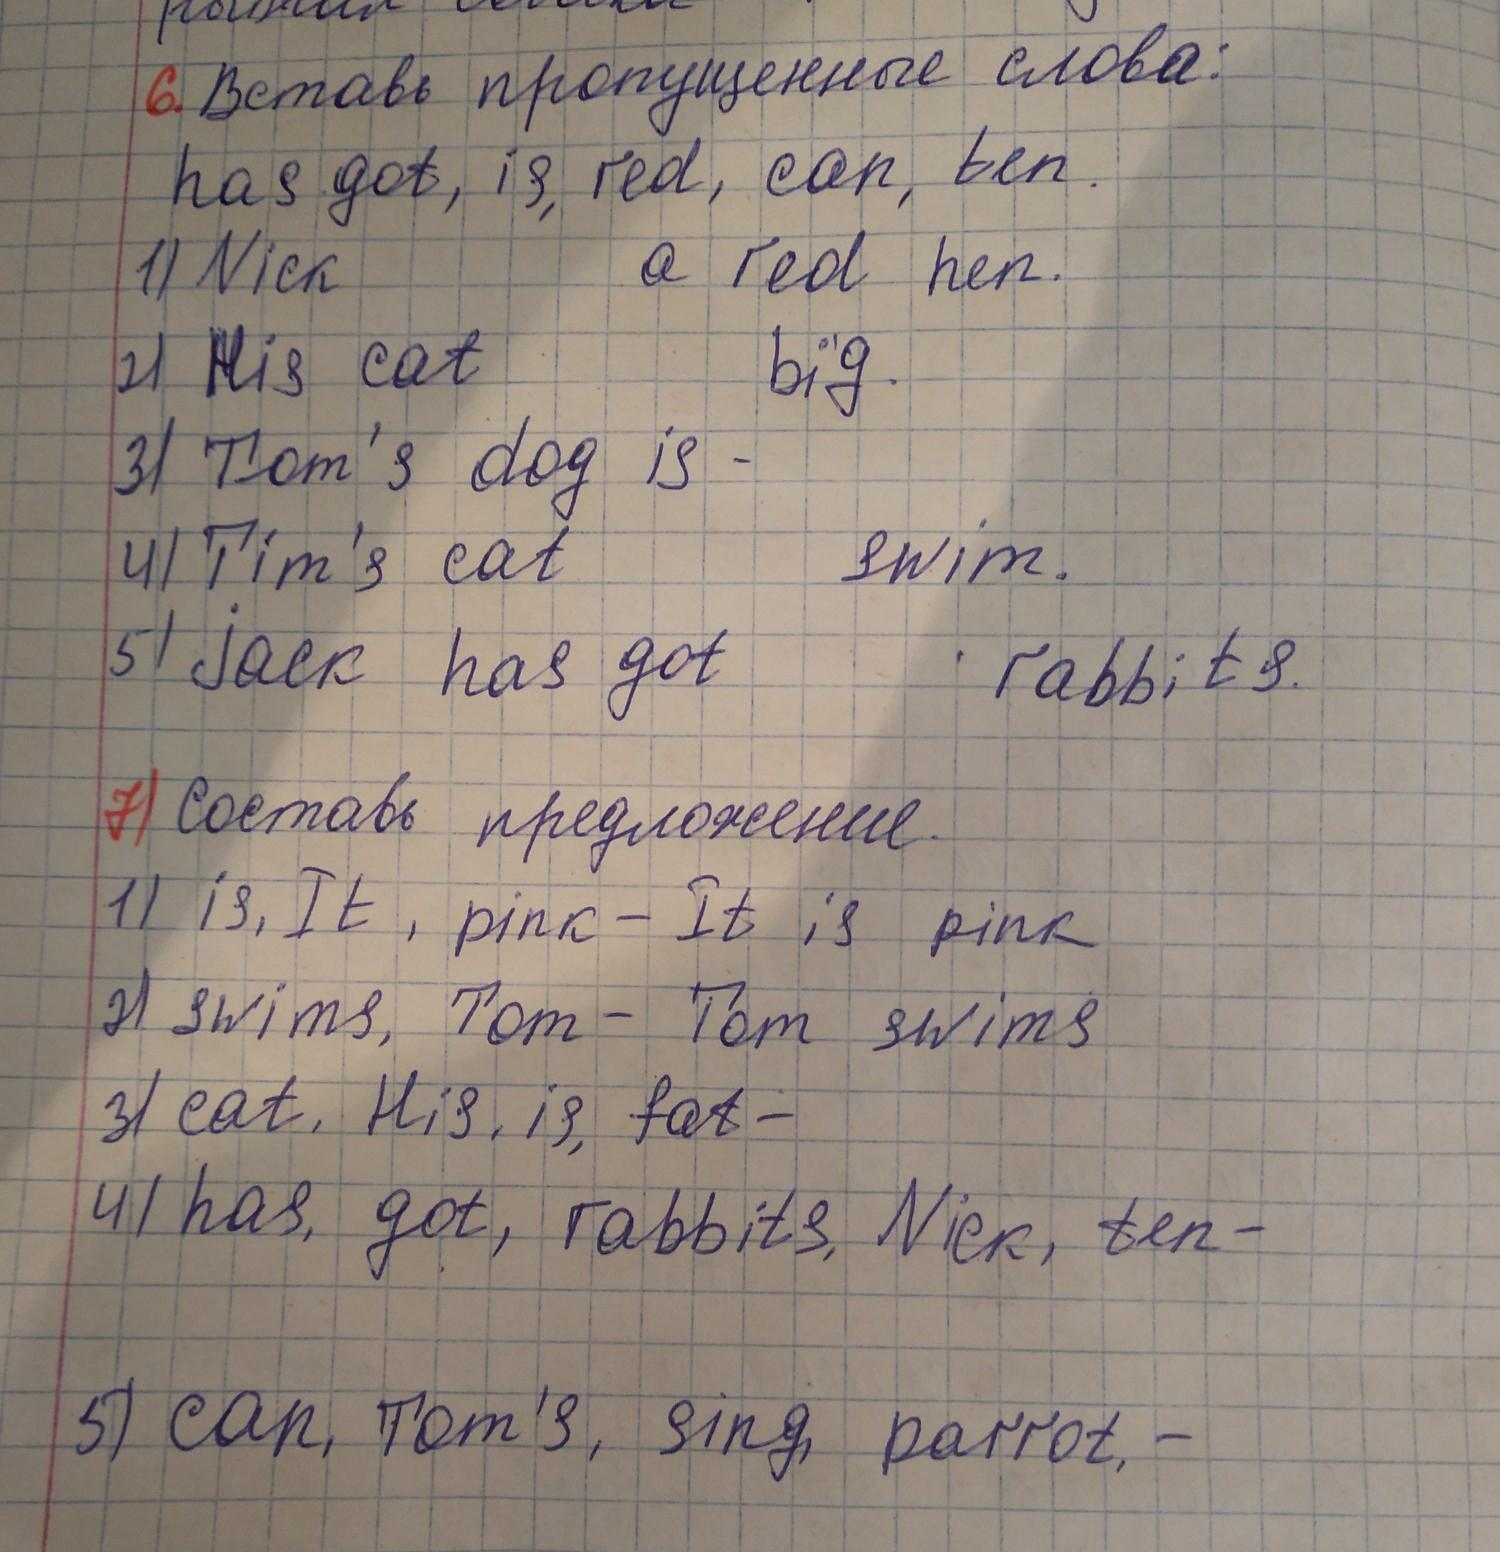 6. Вставь пропущенные слова:
has got, is, red, can, ten.
1) Nick a red hen.
2) His cat big.
3) Tom's dog is -
4) Tim's cat swim.
5) jack has got rabbits.
7) Составь предложение.
1) is, It, pink - It is pink
2) swims, Tom - Tom swims
3) cat, His, is, fat -
4) has, got, rabbits, Nick, ten -
5) can, Tom's, sing, parrot, -